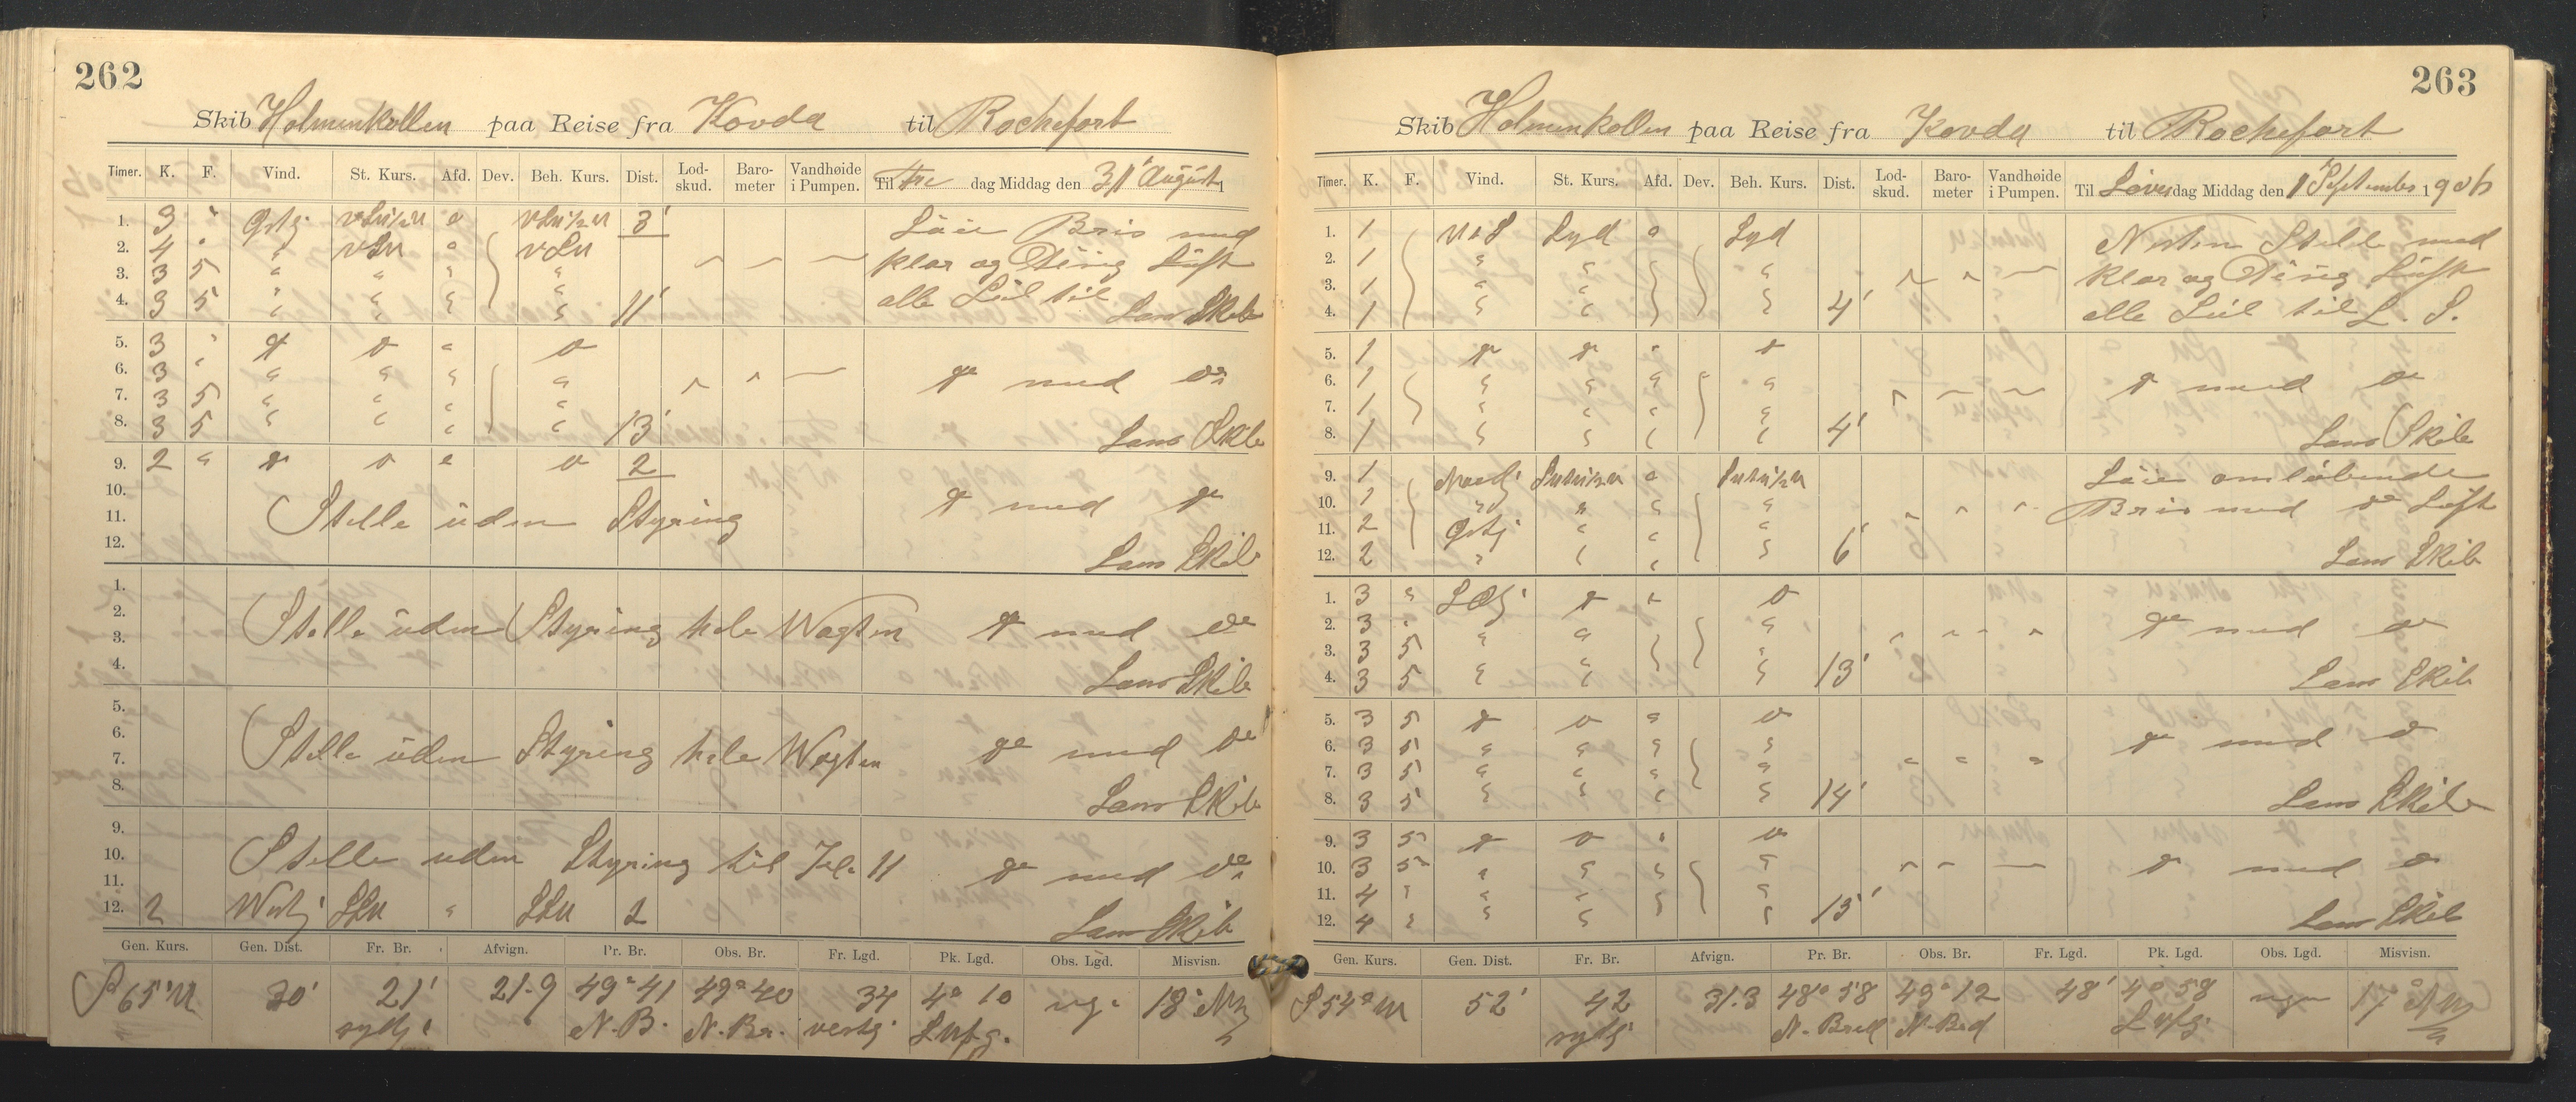 262
Skib Holmenkollen paa Reise fra Kovda til Rochefort
Timer. K. F. Vind. St. Kurs. Afd. Dev. Beh. Kurs. Dist. Lod-skud. Baro-meter Vandhøide i Pumpen. Til Fre dag Middag den 31' August 1
1. 3 " Østlj 3' Laie Bris med
2. 4 " " klar og Disig Luft
3. 3 5 " " " " alle Seil til
4. 3 5 " " " " 11' Lens Skib
5. 3 " do do " do
6. 3 " " " " " do med do
7. 3 5 " " " "
8. 3 5 " " " " 13' Lens Skib
9. 2 " do do " do 2
10. do med do
11. Stille uden Styring
12. Lens Skib
1.
2. Stille uden Styring hele Wagten do med do
3.
4. Lens Skib
5.
6. Stille uden Styring hele Wagten do med do
7.
8. Lens Skib
9.
10. Stille uden Styring til Kl. 11 do med do
11.
12. 2 Westlj SSW " SSW 2 Lens Skib
Gen. Kurs. Gen. Dist. Fr. Br. Afvign. Pr. Br. Obs. Br. Fr. Lgd. Pk. Lgd. Obs. Lgd. Misvisn.
S 65° W 30' 21' 21.9 49° 41 49° 40 34 4° 10 18°
sydlj N. B. N. Br. vestlj
263
Skib Holmenkollen paa Reise fra Kovda til Rochefort
Timer. K. F. Vind. St. Kurs. Afd. Dev. Beh. Kurs. Dist. Lod-skud. Baro-meter Vandhøide i Pumpen. Til Løver dag Middag den 1 September 1906
1. 1 Syd " Syd Nesten Stille med
2. 1 " " " klar og Disig Luft
3. 1 " " " alle Seil til L. S.
4. 1 " " " 4'
5. 1 do do " do
6. 1 " " " " do med do
7. 1 " " " "
8. 1 " " " " 4' Lens Skib
9. 1 Nordlj Laie omløbende
10. 1 " " " " Bris med do Luft
11. 2 Østlj " " "
12. 2 " " " " 6' Lens Skib
1. 3 " SOlj do " do
2. 3 " " do med do
3. 3 5 " "
4. 3 5 " " " 13' Lens Skib
5. 3 5 do do " do
6. 3 5 " " " " do med do
7. 3 5 " " " "
8. 3 5 " " " " 14' Lens Skib
9. 3 5 do do " do
10. 3 5 " " " " do med do
11. 4 " " " " "
12. 4 " " " " 15' Lens Skib
Gen. Kurs. Gen. Dist. Fr. Br. Afvign. Pr. Br. Obs. Br. Fr. Lgd. Pk. Lgd. Obs. Lgd. Misvisn.
S 54° W 52' 42 31.3 48° 58 49° 12 48' 4° 58 17°
sydlj N. Bred N. Brd